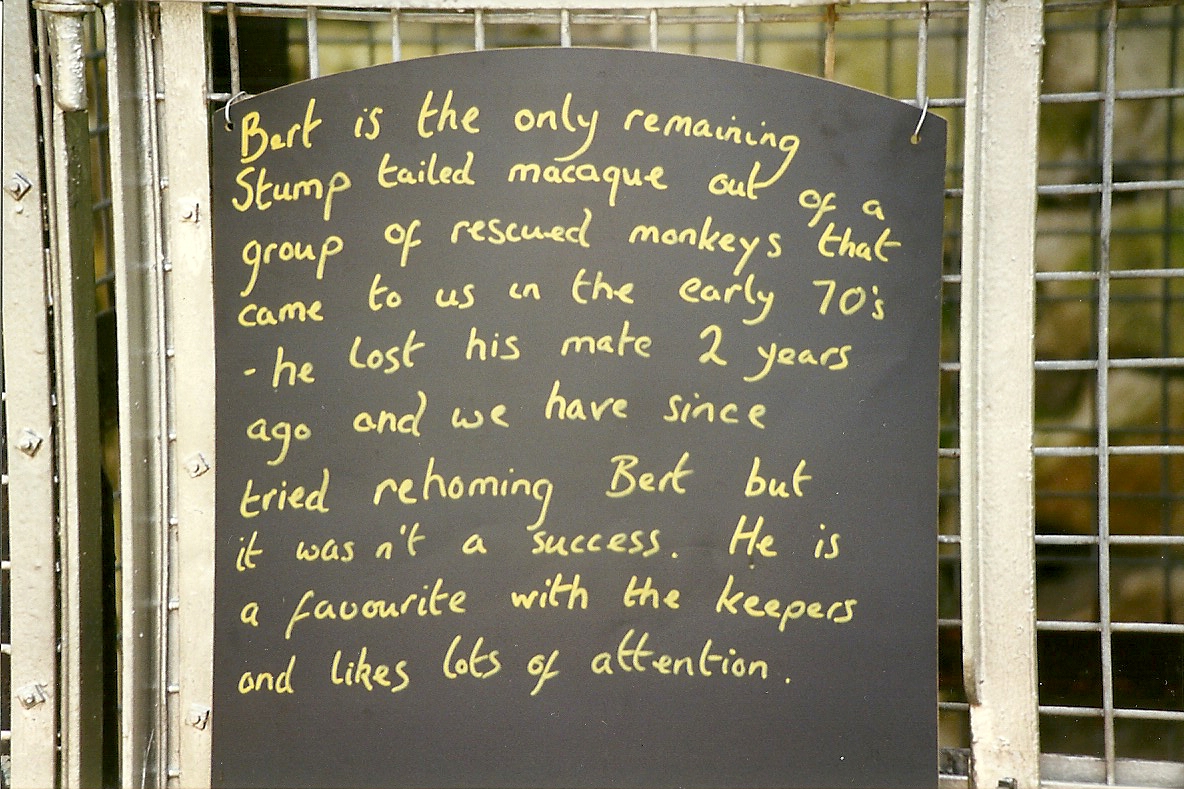 Bert is the only remaining
Stump tailed macaque out of a
group of rescued monkeys that
came to us in the early 70's
- he lost his mate 2 years
ago and we have since
tried rehoming Bert but
it wasn't a success. He is
a favourite with the keepers
and likes lots of attention.